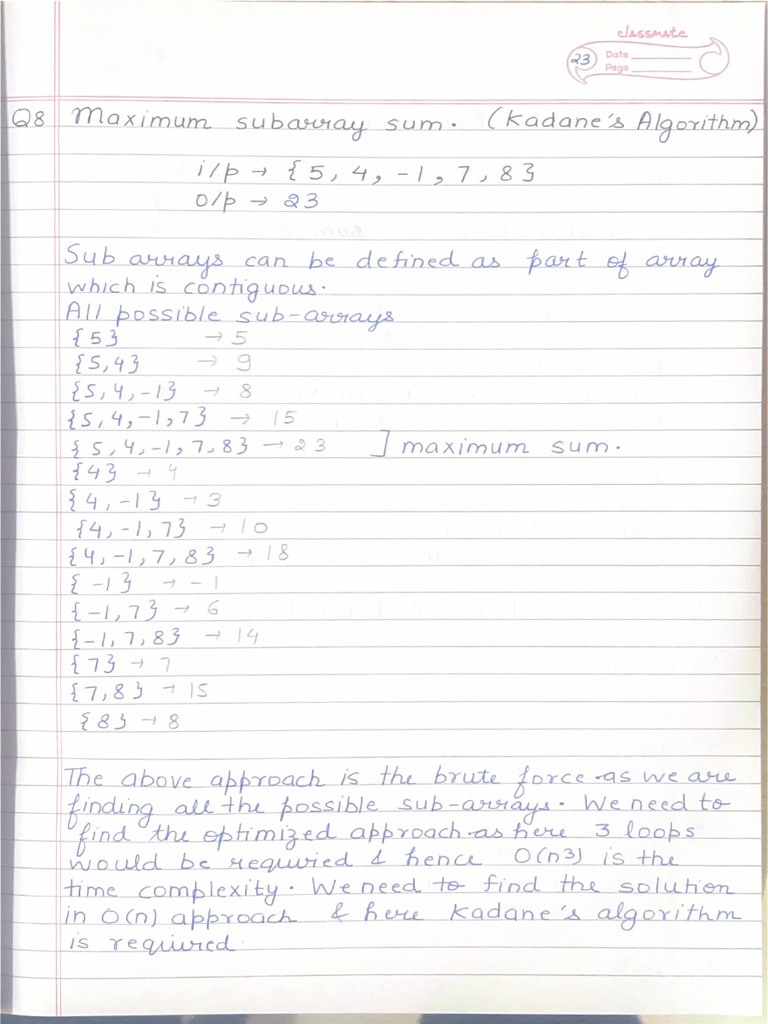 classmate
23 Date
Page
Q8 Maximum subarray sum. (Kadane's Algorithm)
i/p → {5, 4, -1, 7, 8}
o/p → 23
Sub arrays can be defined as part of array
which is contiguous.
All possible sub-arrays
{5} → 5
{5,4} → 9
{5, 4, -1} → 8
{5, 4, -1, 7} → 15
{5, 4, -1, 7, 8} → 23 ] maximum sum.
{4} → 4
{4, -1} → 3
{4, -1, 7} → 10
{4, -1, 7, 8} → 18
{-1} → -1
{-1, 7} → 6
{-1, 7, 8} → 14
{7} → 7
{7, 8} → 15
{8} → 8
The above approach is the brute force as we are
finding all the possible sub-arrays. We need to
find the optimized approach as here 3 loops
would be requried & hence O(n3) is the
time complexity. We need to find the solution
in O(n) approach & here Kadane's algorithm
is requried.